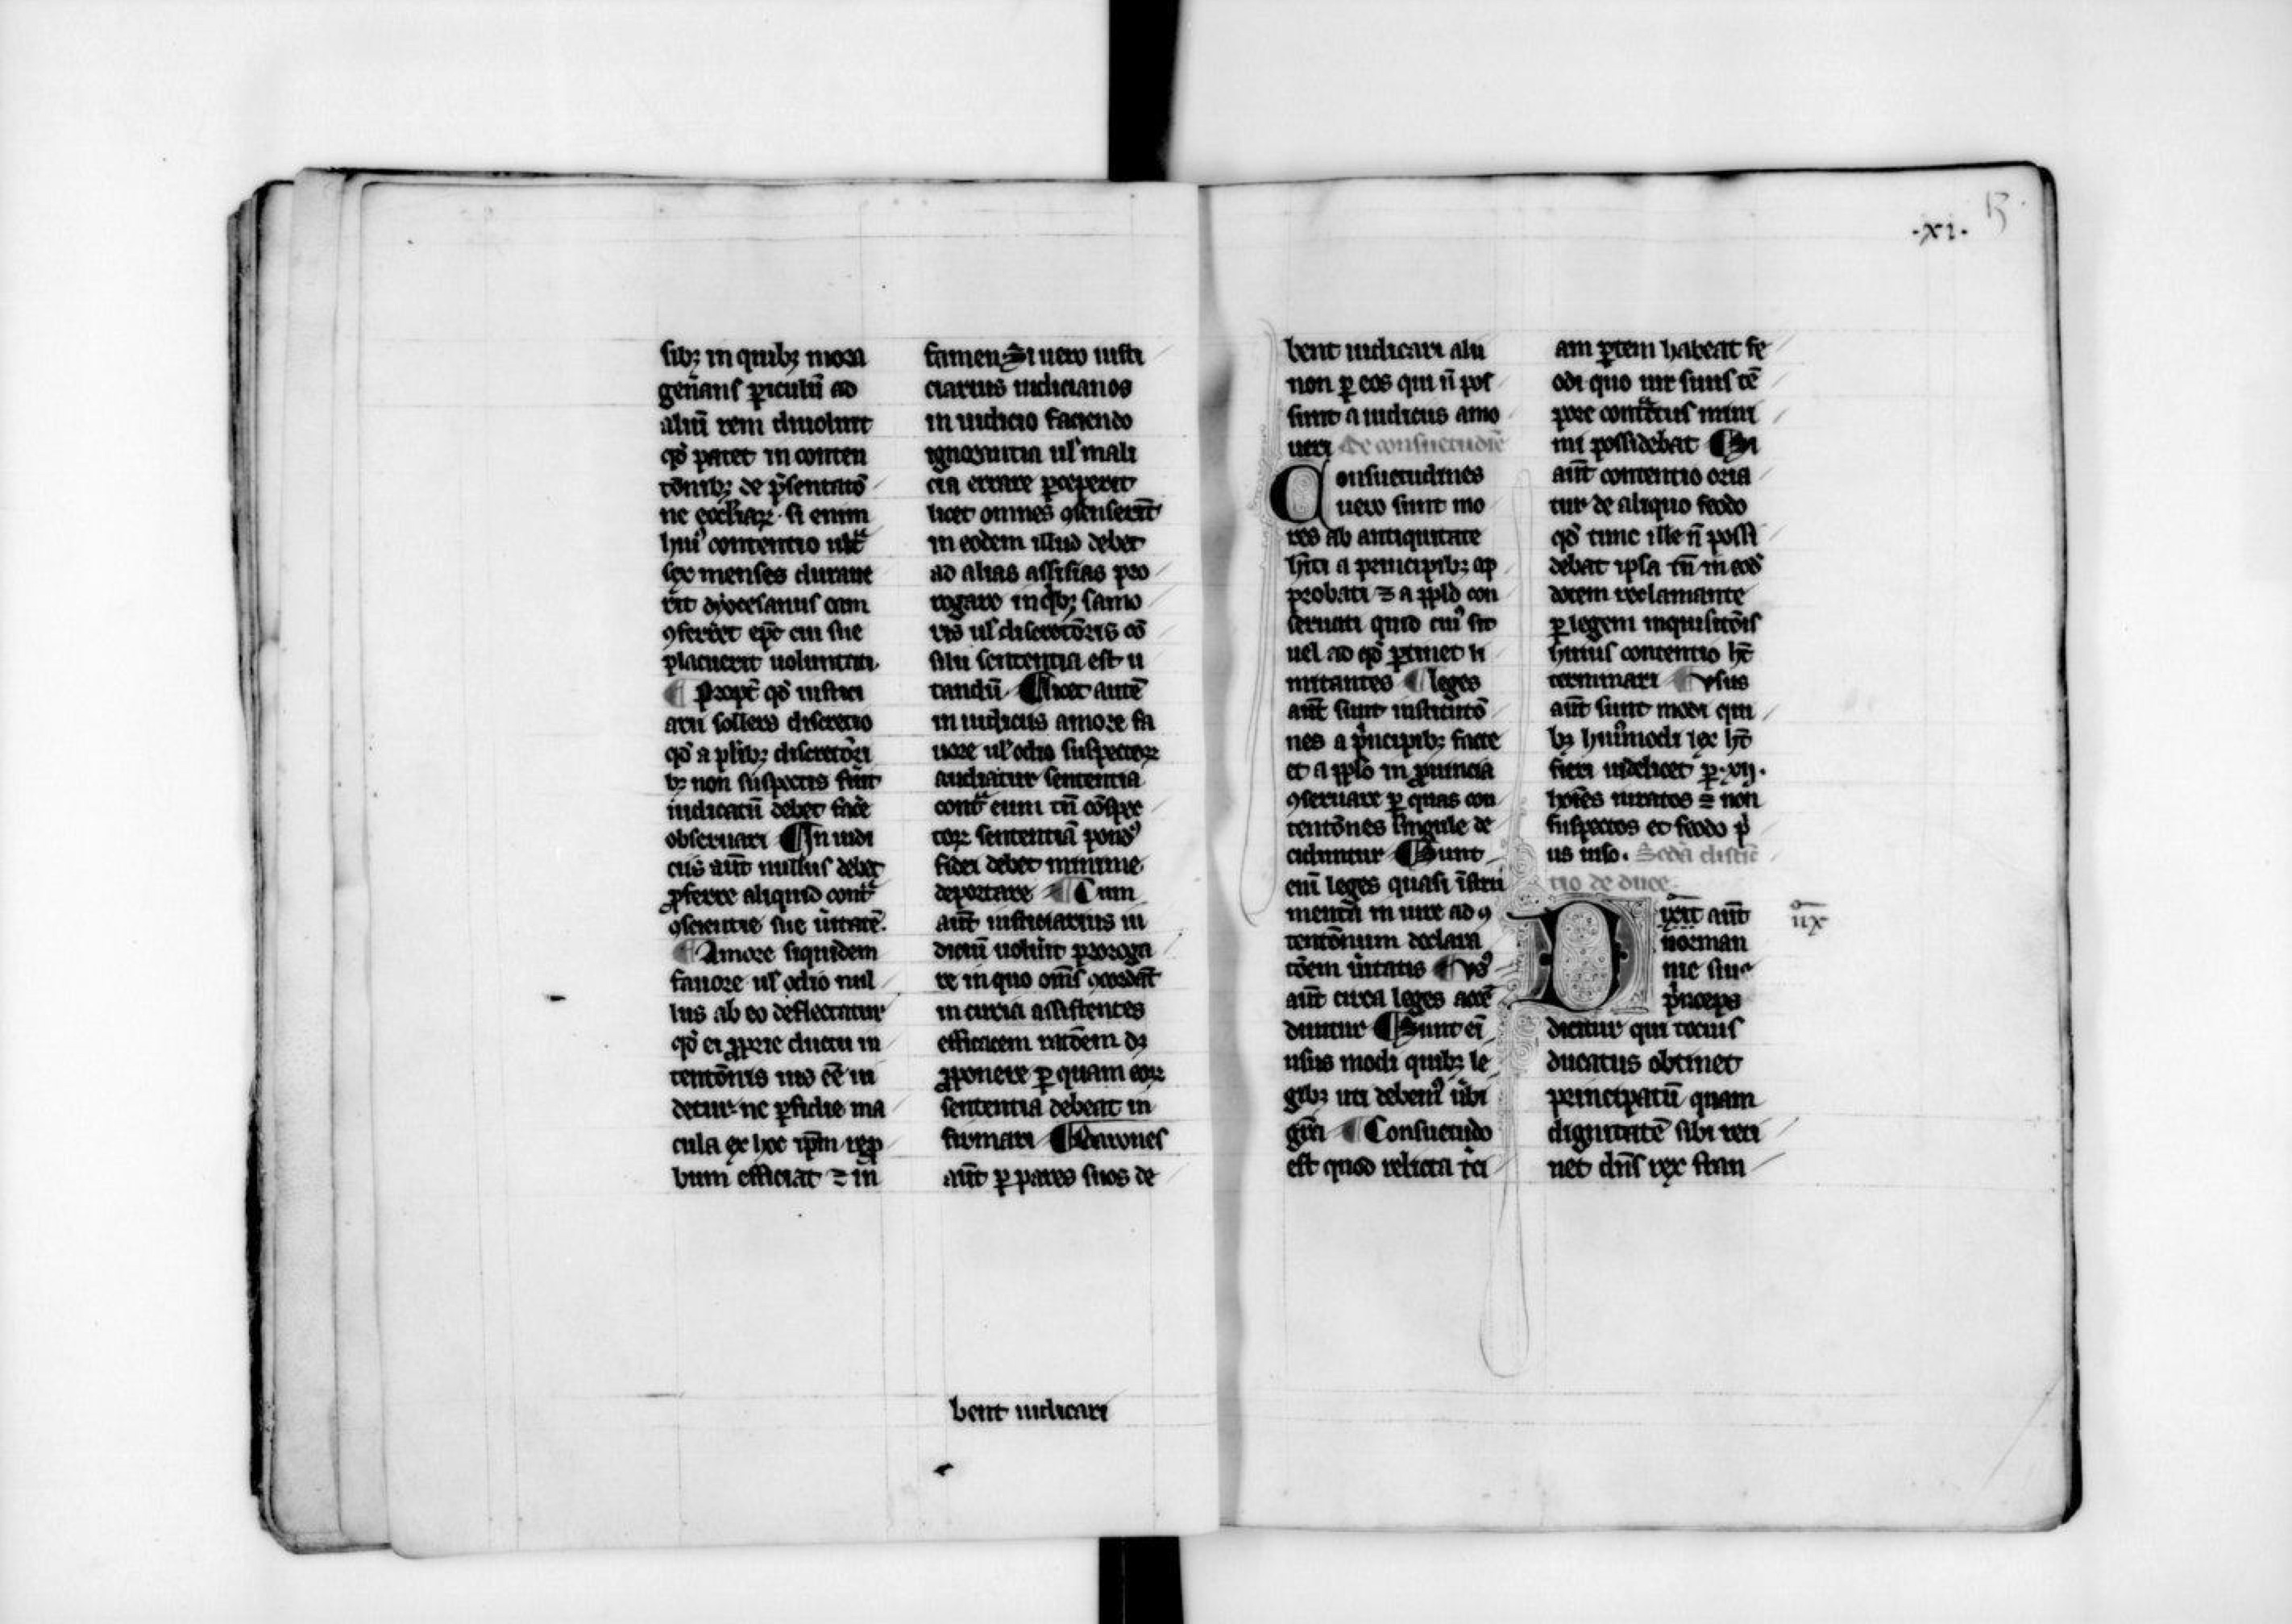 sibꝫ in quibꝫ mora
gen̄ans ꝑiculū ad
aliū rem diuolunt
qd̄ patet in conten
tōnibꝫ de p̄sentatō
ne eccl̄iaꝝ · si enim
huiꝰ contentio ult̄ᵃ
sex menses duraue
rit dyocesanus eam
ꝯferret ep̄c cui sue
placuerit uoluntati.
¶ Propt̄ qd̄ iustici
arii sollers discretio
qd̄ a plibꝫ discretiōri
bꝫ non suspectis fuit
iudicatū debet fac̄e
obseruari ¶ In iudi
ciis aūt nullus debet
ꝓferre aliquid cont̄ᵃ
ꝯscientie sue ūitatē.
¶ Amore siquidem
fauore ul̄ odio nul
lus ab eo deflectatur
qd̄ ei ꝓprie ductu in
tentōnis iuo eē ui
detur· ne ꝑfidie ma
cula ex hoc ip̄m rep
bum efficiat ⁊ in
famen Si uero iusti
ciarius iudicianos
in iudicio faciendo
ignorantia ul̄ mali
cia errare ꝑceperit
licet omnes ꝯsenserīt
in eodem illud debet
ad alias assisias pro
rogare in qͥbꝫ sanio
ris ul̄ discretiōris cō
silii sententia est u
tandū. ¶ Licet autē
in iudiciis amore fa
uore ul̄ odio suspectoꝝ
audiatur sententia
cont̄ᵃ eum tn̄ cōspe
toꝝ sententiā pondꝰ
fidei debet minime
deportare ¶ Cum
aūt iusticiarius iu
diciū uolūit proroga
re in quo om̄s ꝯcordāt
in curia assistentes
efficacem rac̄oem dꝫ
ꝓponere ꝑ quam eoꝝ
sententia debeat in
firmari ¶ Barones
aūt ꝑ pares suos de
bent iudicari
·xi· 13·
bent iudicari alii
non ꝑ eos qui n̄ pos
sunt a iudiciis amo
ueri De consuetudīe
Consuetudines
uero sunt mo
res ab antiquitate
h̄iti a principibꝫ ap
probati ⁊ a ppl̄o con
seruati quid cuiꝰ sit
uel ad qd̄ ꝑtinet li
mitantes ¶ leges
aūt sunt institutō
nes a p̄ncipibꝫ facte
et a ppl̄o in ꝓuincia
ꝯseruate ꝑ quas con
tentōnes singule de
ciduntur ¶ Sunt
enī leges quasi īstru
menta in iure ad ꝯ
tentōnum declara
tōem ūitatis ¶ Vsꝰ
aūt circa leges attē
duntur ¶ Sunt eī
usus modi quibꝫ le
gibꝫ uti debemꝰ ūbi
grā ¶ Consuetudo
est quod relicta t̄ci
am ꝑtem habeat fe
odi quo uir suus tē
pore contᵃctus mini
mi possidebat ¶ Si
aūt contentio oria
tur de aliquo feodo
qd̄ tunc ille n̄ possi
debat ipsa tn̄ in eod̄
dotem reclamante
ꝑ legem inquisitōis
huius contentio h̄t
terminari ¶ Vsus
aūt sunt modi qui
bꝫ huiꝰmodi lex h̄t
fieri uidelicet ꝑ·xij·
hoīes iuratos ⁊ non
suspectos et feodo p̄
us uiso. Scd̄a distīc
tio de duce
Dyxit aūt
norman
nie siue
p̄nceps
dicitur qui tocius
ducatus obtinet
principatū quam
dignitatē sibi reti
net dn̄s rex fran
ux